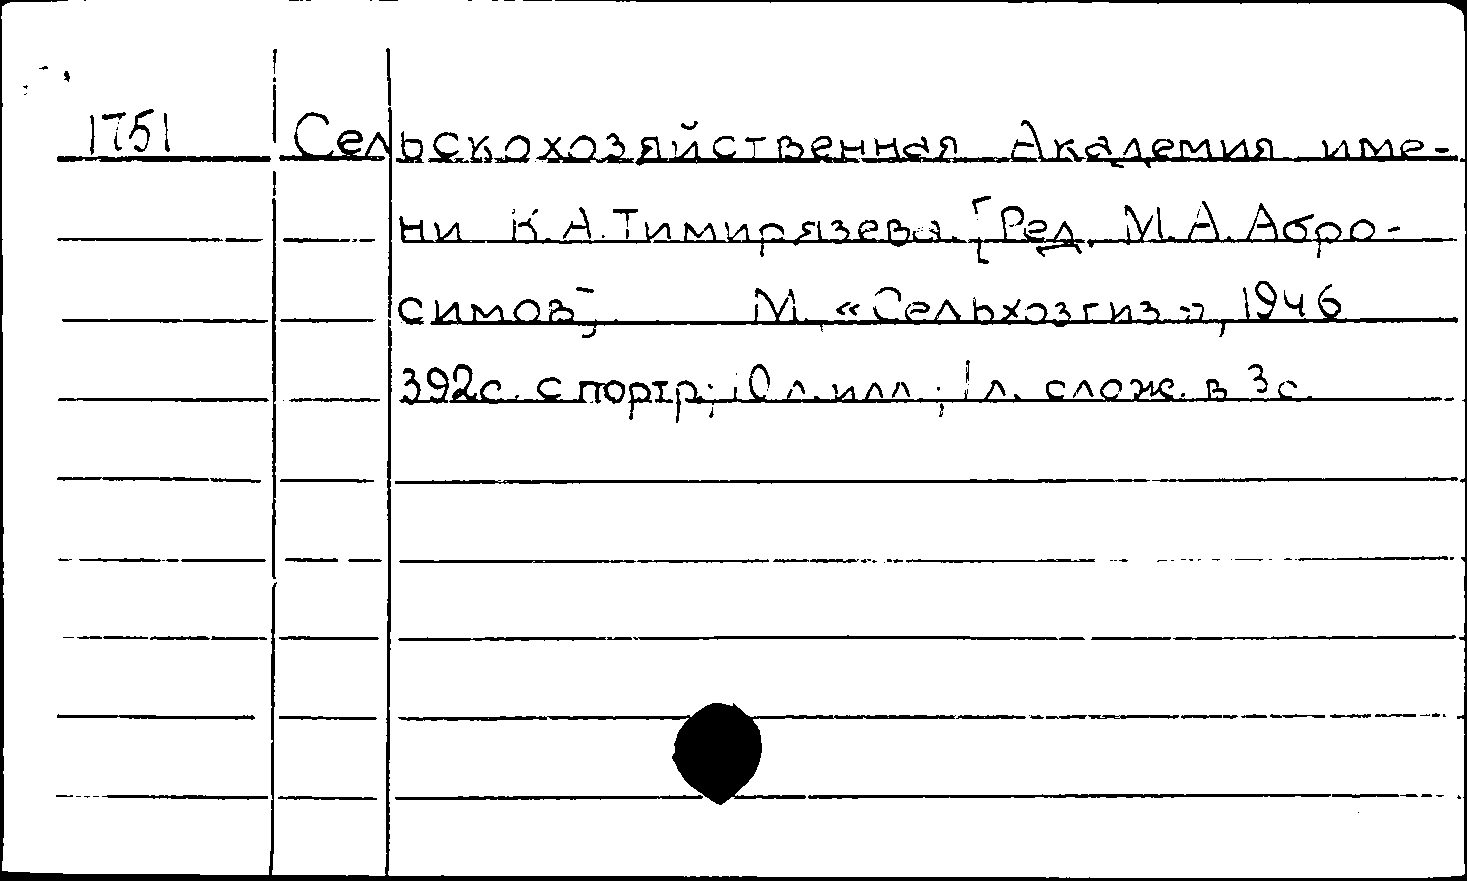 1751 Сельскохозяйственная Академия име-
ни К.А.Тимирязева. [Ред. М.А. Абро-
симов], М. «Сельхозгиз», 1946
392с. с портр; 10 л. илл.; 1 л. слож. в 3с.